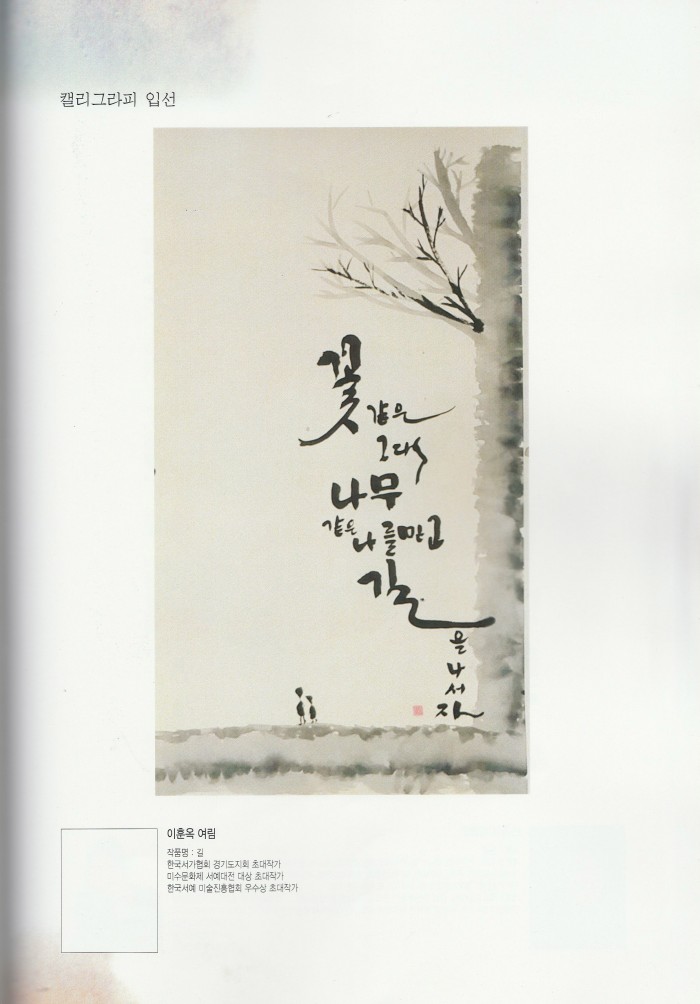 캘리그라피 입선
꽃
같은
그대
나무
같은 나를 믿고
길
을
나
서
자
이훈옥 여림
작품명 : 길
한국서가협회 경기도지회 초대작가
미수문화제 서예대전 대상 초대작가
한국서예 미술진흥협회 우수상 초대작가